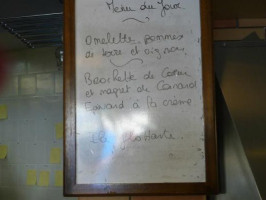 Menu du Jour
Omelette pommes
de terre et oignon
Brochette de Coeur
et magret de Canard
Epinard à la crème